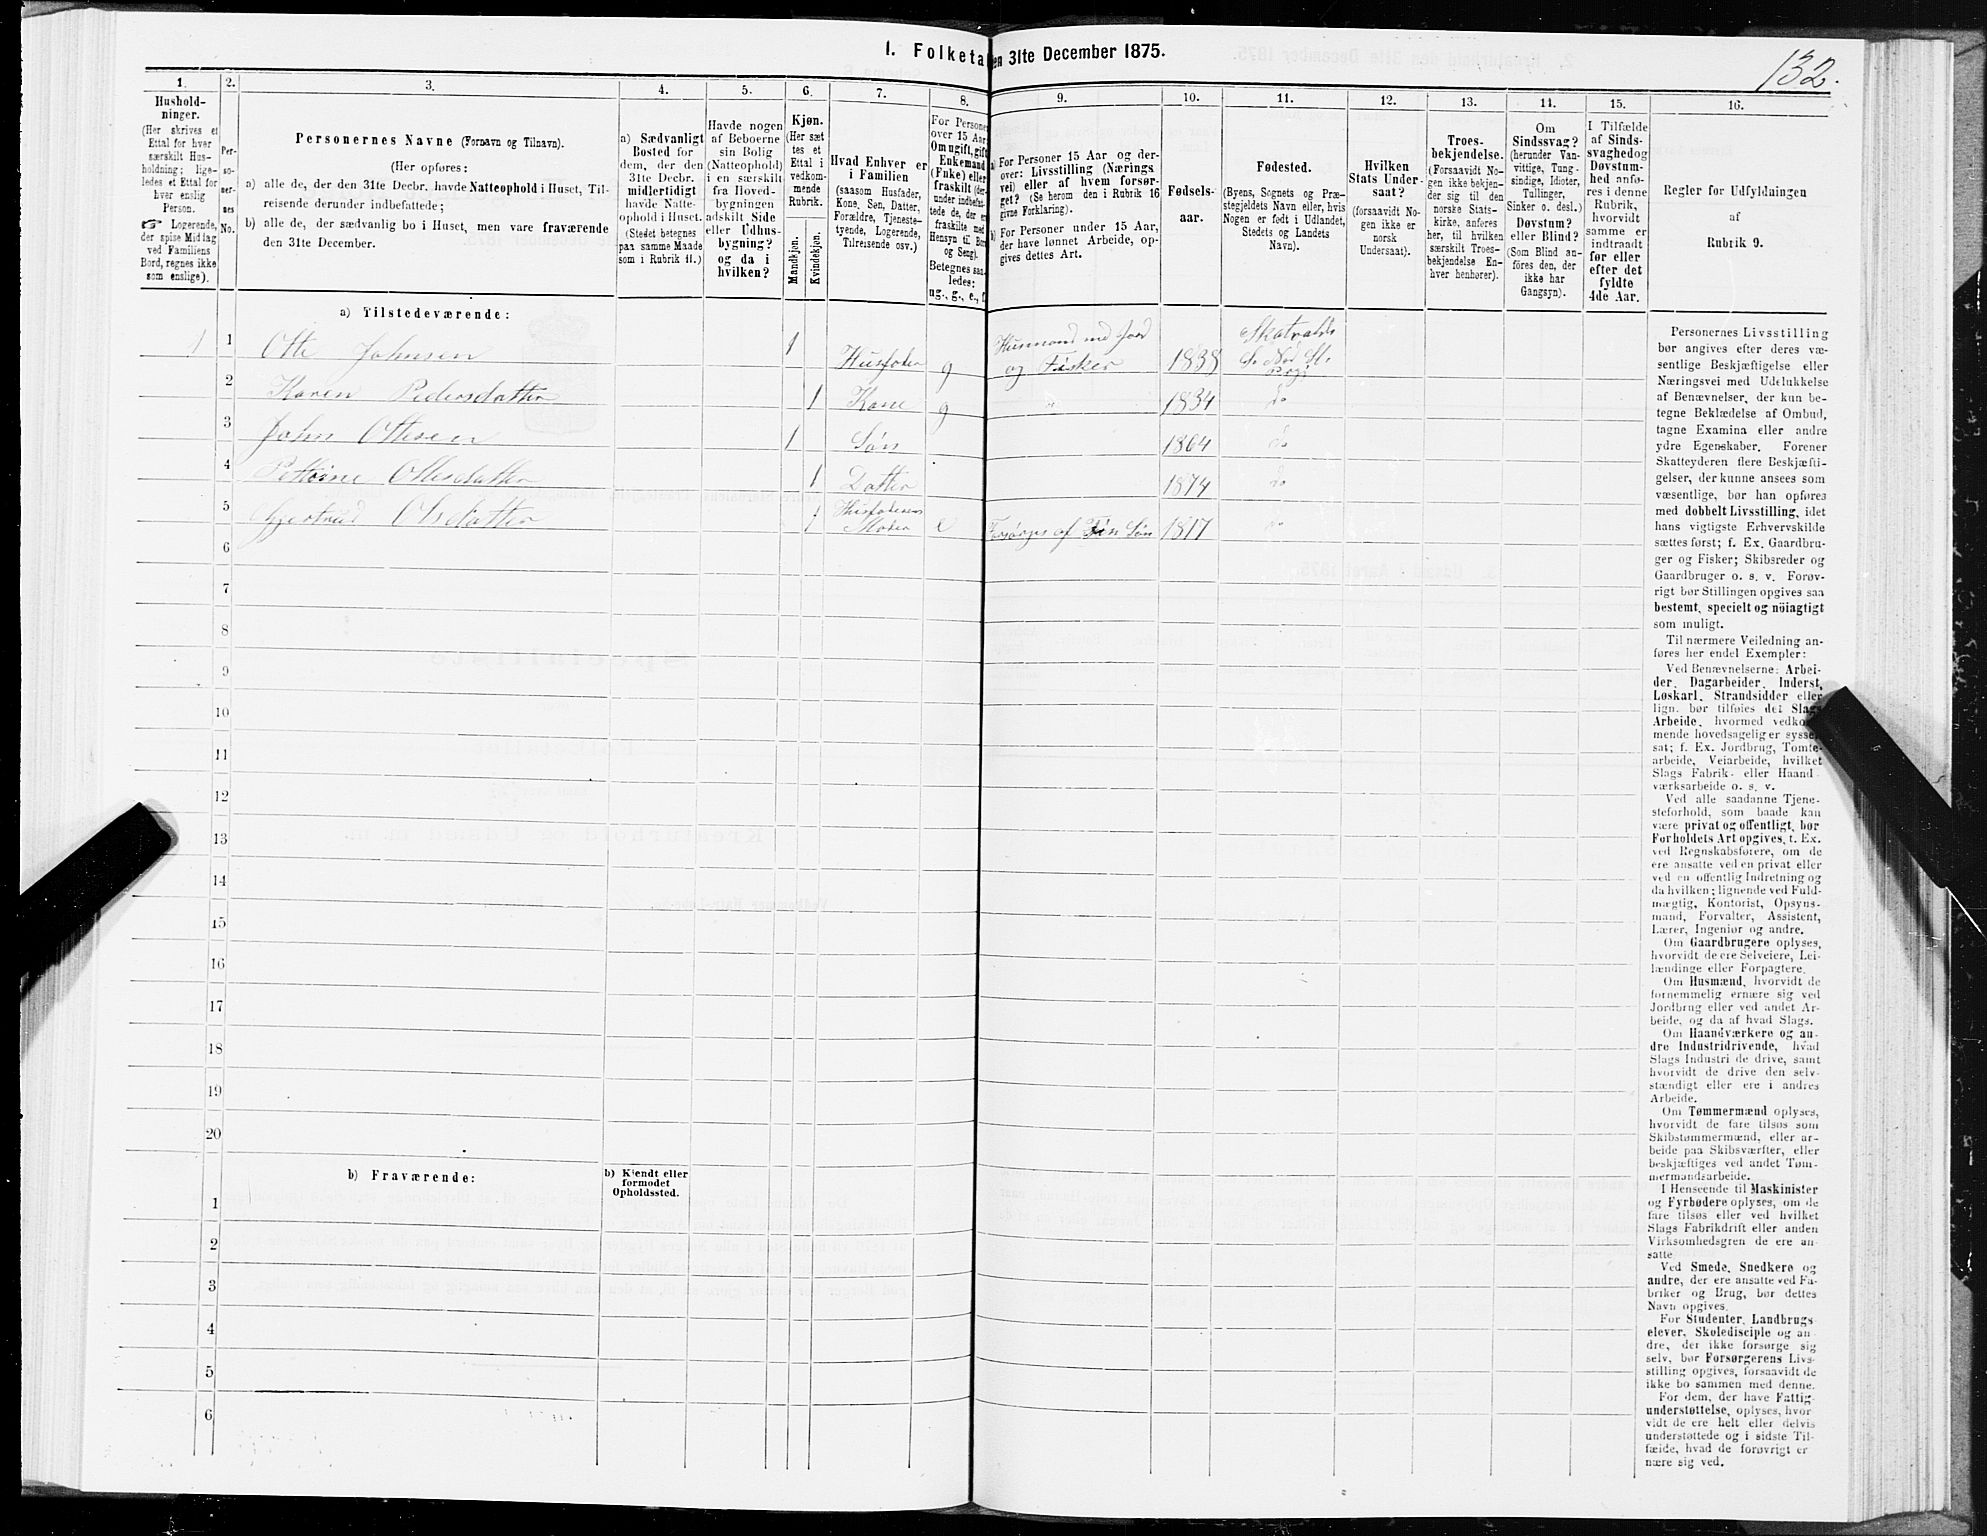 132.
1. Folketal den 31te December 1875.
1. 2. 3. 4. 5. 6. 7. 8. 9. 10. 11. 12. 13. 14. 15. 16.
Hushold-
ninger.
(Her skrives et
Ettal for hver
særskilt Hus-
holdning; lige-
ledes et Ettal for
hver enslig
Person.
☞ Logerende,
der spise Middag
ved Familiens
Bord, regnes ikke
som enslige).
Per-
so-
ner-
nes
No.
Personernes Navne (Fornavn og Tilnavn).
(Her opføres:
a) alle de, der den 31te Decbr. havde Natteophold i Huset, Til-
reisende derunder indbefattede;
b) alle de, der sædvanlig bo i Huset, men vare fraværende
den 31te December.
a) Sædvanligt
Bosted for
dem, der den
31te Decbr.
midlertidigt
havde Natte-
ophold i Huset.
(Stedet betegnes
paa samme Maade
som i Rubrik 11.)
Havde nogen
af Beboerne
sin Bolig
(Natteophold)
i en særskilt
fra Hoved-
bygningen
adskilt Side
eller Udhus-
bygning?
og da i
hvilken?
Kjøn.
(Her sæt
tes et
Ettal i
vedkom-
mende
Rubrik.
Mandkjøn.
Kvindekjøn.
Hvad Enhver er
i Familien
(saasom Husfader,
Kone, Søn, Datter,
Forældre, Tjeneste-
tyende, Logerende,
Tilreisende osv.)
For Personer
over 15 Aar:
Om ugift, gift
Enkemand
(Enke) eller
fraskilt (der-
under indbefat-
tede de, der er
fraskilte med
Hensyn til Bord
og Seng).
Betegnes saa-
ledes:
ug., g., e., f.
a) For Personer 15 Aar og der-
over: Livsstilling (Nærings
vei) eller af hvem forsør-
get? (Se herom den i Rubrik 16
givne Forklaring).
b) For Personer under 15 Aar,
der have lønnet Arbeide, op-
gives dettes Art.
Fødsels-
aar.
Fødested.
(Byens, Sognets og Præ-
stegjeldets Navn eller, hvis
Nogen er født i Udlandet,
Stedets og Landets
Navn).
Hvilken
Stats Under-
saat?
(forsaavidt No-
gen ikke er
norsk
Undersaat).
Troes-
bekjendelse.
(Forsaavidt No-
gen ikke bekjen-
der sig til den
norske Stats-
kirke, anføres
her, til hvilken
særskilt Troes-
bekjendelse En-
hver henhører).
Om
Sindssvag?
(herunder Van-
vittige, Tung-
sindige, Idioter,
Tullinger,
Sinker o. desl.)
Døvstum?
eller Blind?
(Som Blind an-
føres den, der
ikke har
Gangsyn).
I Tilfælde
af Sinds-
svaghedog
Døvstum-
hed anfø-
res i denne
Rubrik,
hvorvidt
samme er
indtraadt
før eller
efter det
fyldte
4de Aar.
Regler for Udfyldningen
af
Rubrik 9.
a) Tilstedeværende:
1 1 Otte Johnsen 1 Husfader g Husmand med Jord og Fisker 1838 Skatvalds S. Nd St. Prgj
2 Karen Pedersdatter 1 Kone g " 1834 do
3 John Ottesen 1 Søn 1864 do
4 Ottesdatter 1 Datter 1874 do
5 Gjertrud Olsdatter 1 Husfaderens Moder e Forsørges af Sin Søn 1817 do
6
7
8
9
10
11
12
13
14
15
16
17
18
19
20
b) Fraværende:
b) Kjendt eller
formodet
Opholdssted.
1
2
3
4
5
6
Personernes Livsstilling
bør angives efter deres væ-
sentlige Beskjæftigelse eller
Næringsvei med Udelukkelse
af Benævnelser, der kun be-
tegne Beklædelse af Ombud,
tagne Examina eller andre
ydre Egenskaber. Forener
Skatteyderen flere Beskjæfti-
gelser, der kunne ansees som
væsentlige, bør han opføres
med dobbelt Livsstilling, idet
hans vigtigste Erhvervskilde
sættes først; f. Ex. Gaardbru-
ger og Fisker; Skibsreder og
Gaardbruger o. s. v. Forøv-
rigt bør Stillingen opgives saa
bestemt, specielt og nöiagtigt
som muligt.
Til nærmere Veiledning an-
føres her endel Exempler:
Ved Benævnelserne: Arbei-
der, Dagarbeider, Inderst,
Løskarl, Strandsidder eller
lign. bør tilføies det Slags
Arbeide, hvormed vedkom-
mende hovedsagelig er syssel-
sat; f. Ex. Jordbrug, Tomte-
arbeide, Veiarbeide, hvilket
Slags Fabrik- eller Haand-
værksarbeide o. s. v.
Ved alle saadanne Tjene-
steforhold, som baade kan
være privat og offentligt, bør
Forholdets Art opgives, t. Ex.
ved Regnskabsførere, om de
ere ansatte ved en privat eller
ved en offentlig Indretning og
da hvilken; lignende ved Fuld-
mægtig, Kontorist, Opsyns-
mand, Forvalter, Assistent,
Lærer, Ingeniør og andre.
Om Gaardbrugere oplyses,
hvorvidt de ere Selveiere, Lei-
lændinge eller Forpagtere.
Om Husmænd, hvorvidt de
fornemmelig ernære sig ved
Jordbrug eller ved andet Ar-
beide, og da af hvad Slags.
Om Haandværkere og an-
dre Industridrivende, hvad
Slags Industri de drive, samt
hvorvidt de drive den selv-
stændigt eller ere i andres
Arbeide.
Om Tømmermænd oplyses,
hvorvidt de fare tilsøs som
Skibstømmermænd, eller ar-
beide paa Skibsværfter, eller
beskjæftiges ved andet Tøm-
mermandsarbeide.
I Henseende til Maskinister
og Fyrbødere oplyses, om de
fare tilsøs eller ved hvilket
Slags Fabrikdrift eller anden
Virksomhedsgren de ere an-
satte.
Ved Smede, Snedkere og
andre, der ere ansatte ved Fa-
briker og Brug, bør dettes
Navn opgives.
For Studenter, Landbrugs-
elever, Skoledisciple og an-
dre, der ikke forsørge sig
selv, bør Forsørgerens Livs-
stilling opgives, forsaavidt de
ikke bo sammen med denne.
For dem, der have Fattig-
understøttelse, oplyses, hvor
vidt de ere helt eller delvis
understøttede og i sidste Til-
fælde, hvad de forøvrigt er
nære sig ved.